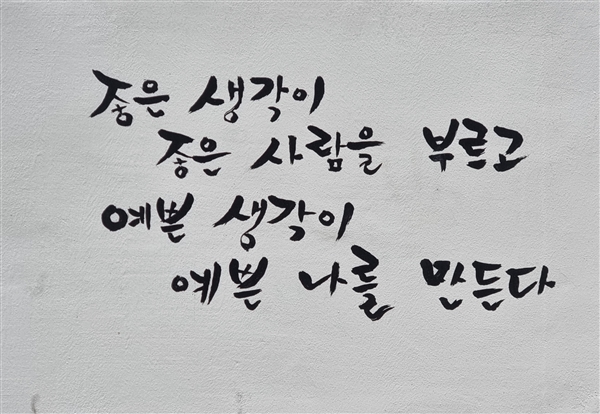 좋은 생각이
좋은 사람을 부르고
예쁜 생각이
예쁜 나를 만든다